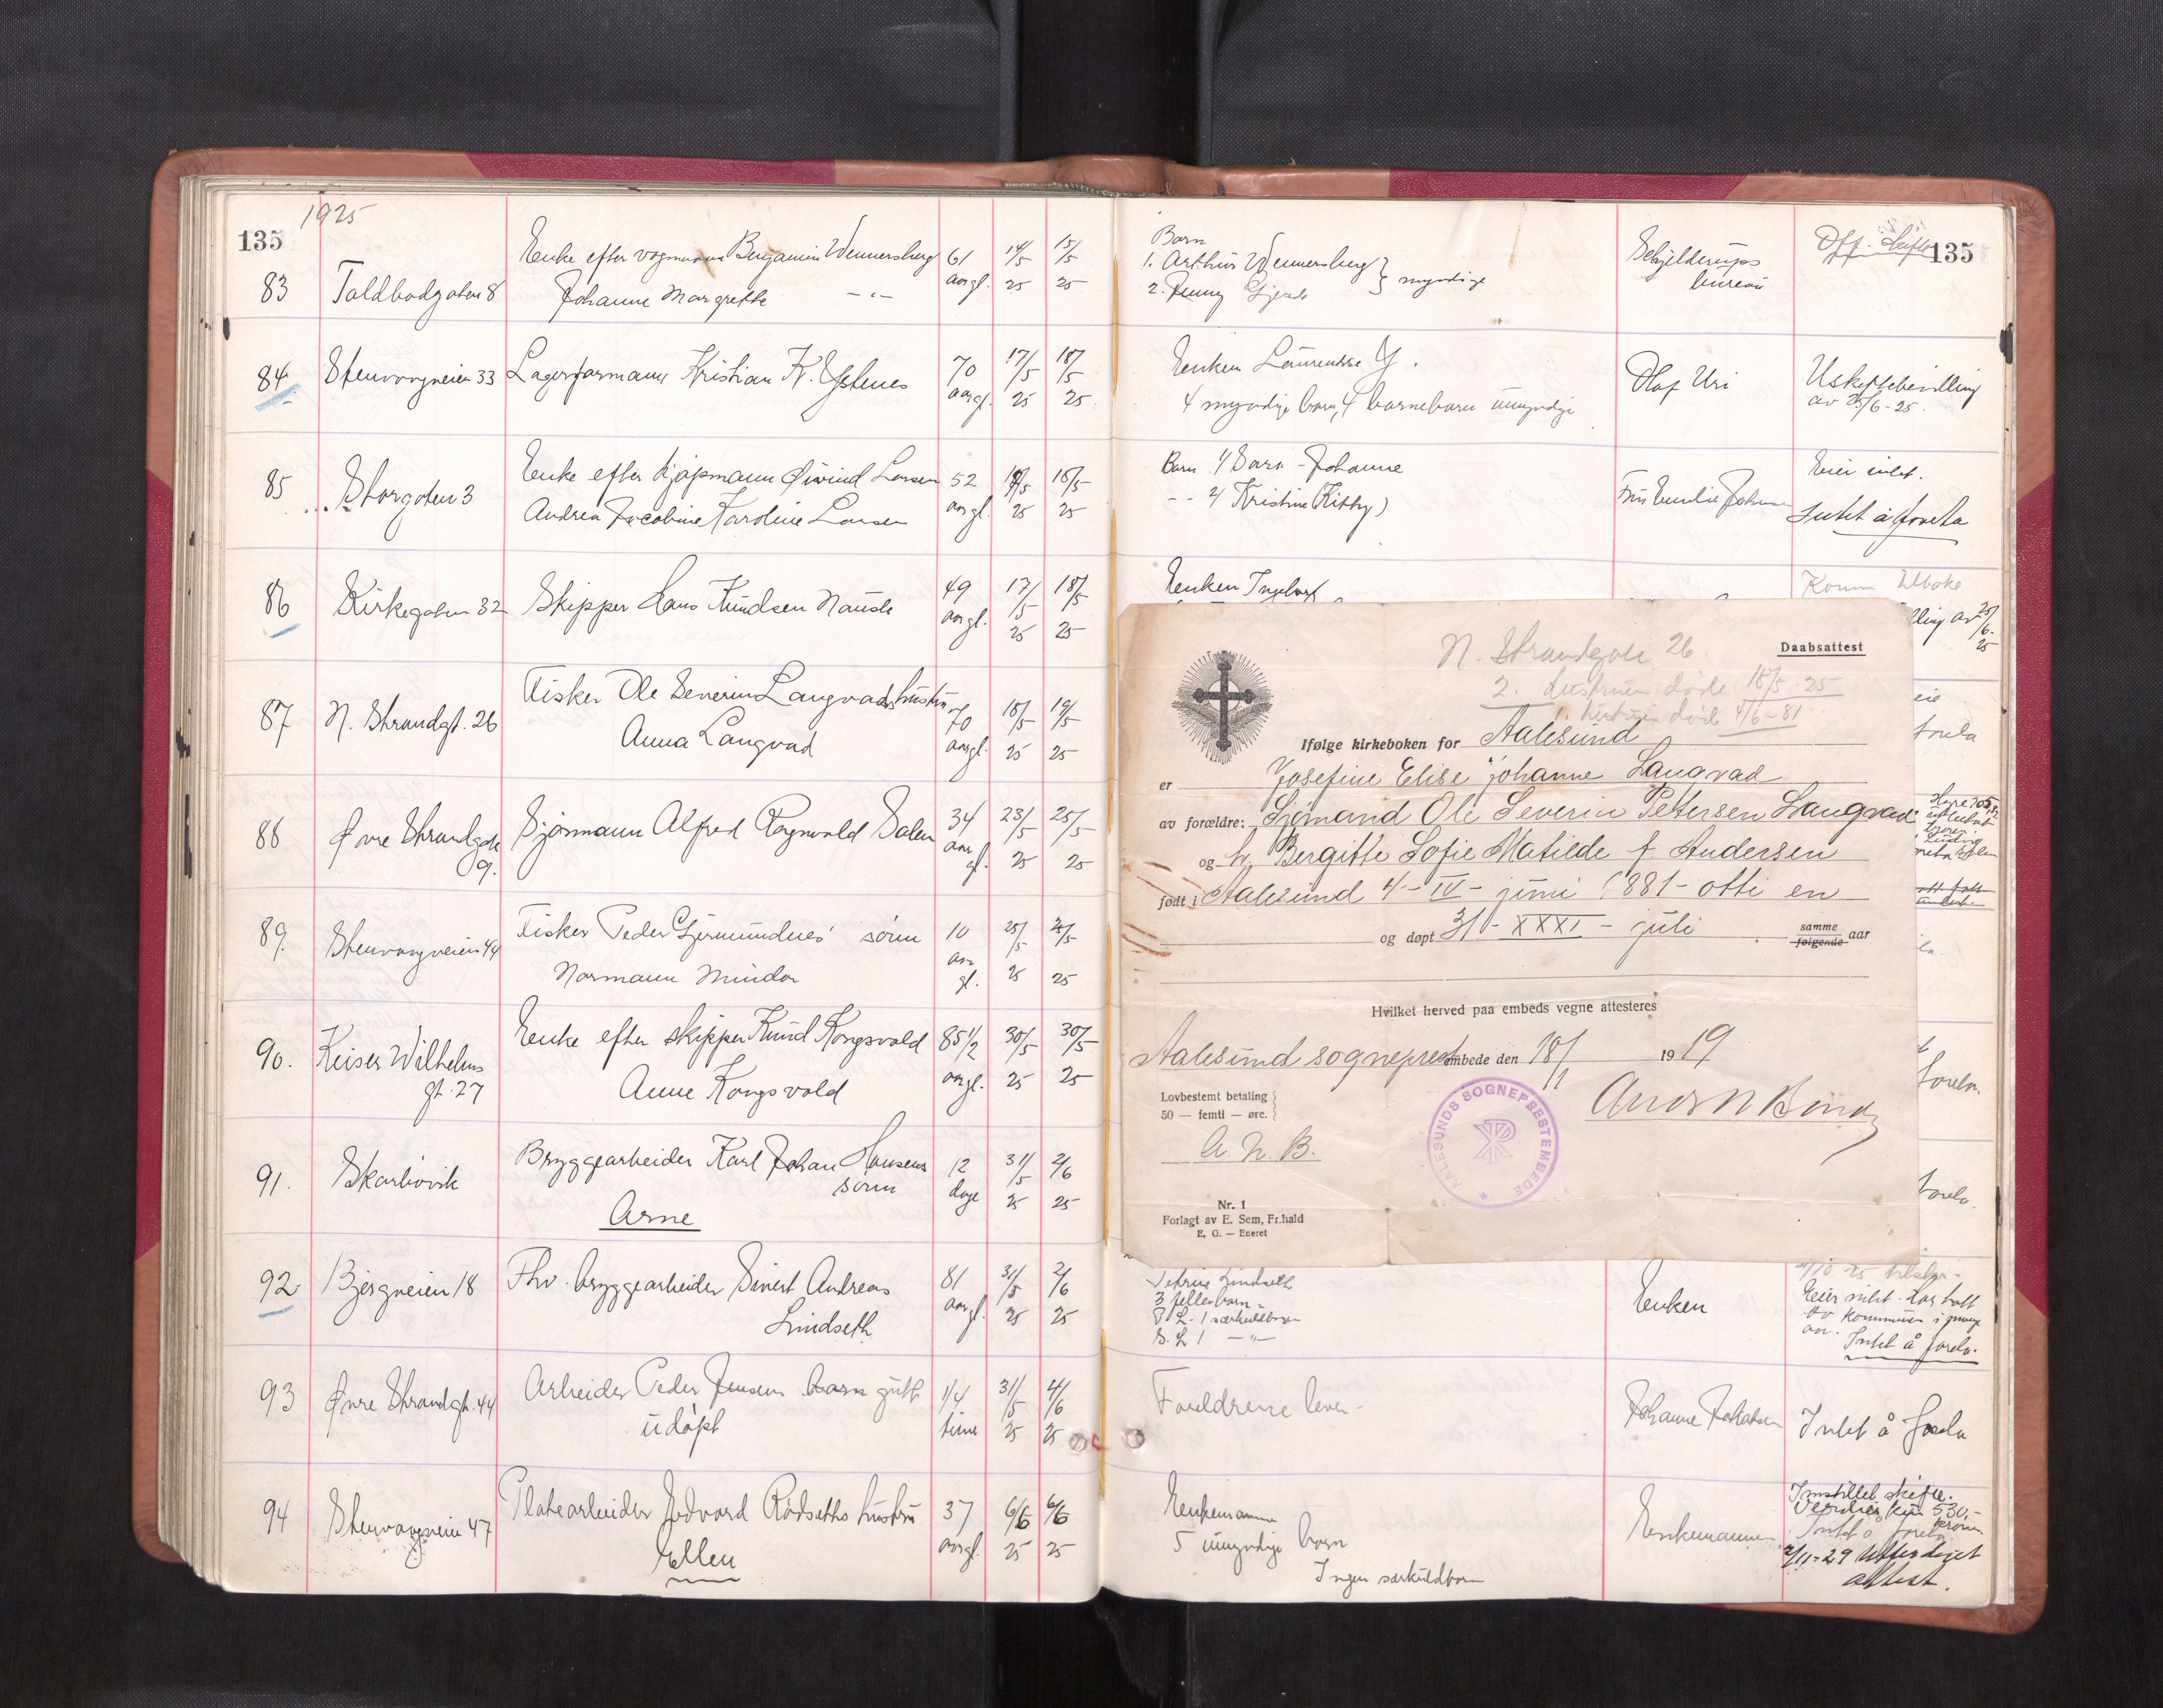 1925
135
83 Toldbodgaten 8 Enke efter vognmann Benjamin Wennersberg 61 14/5 15/5
Johanne Margrethe —"— aargl. 25 25
84 Stenvaagveien 33 Lagerformann Kristian K. Ystenes 70 17/5 18/5
aargl. 25 25
85 Storgaten 3 Enke efter kjøpmann Øivind Larsen 52 18/5
Andrea Jacobine Karoline Larsen aargl. 25 25
86 Kirkegaten 32 Skipper Hans Knudsen Nauste 49 17/5 18/5
aargl. 25 25
87 N. Strandgt. 26 Fisker Ole Severin Langvads hustru 70 18/5 19/5
Anna Langvad aargl. 25 25
88 Øvre Strandgate 9. Sjømann Alfred Ragnvald Salen 34 23/5 25/5
aar gl. 25 25
89. Stenvaagveien 44 Fisker Peder Gjermundnes' sønn 10 25/5
Normann Mindor aar gl. 25 25
90. Keiser Wilhelms gt. 27 Enke efter skipper Knud Kongsvold 85 1/2 30/5 30/5
Anne Kongsvold aargl. 25 25
91. Skarbøvik Bryggearbeider Karl Johan Hansens sønn 12 31/5 2/6
Arne dage 25 25
92 Bjergveien 18 Fhv. bryggearbeider Sivert Andreas 81 31/5 2/6
Lindseth aargl. 25 25
93 Øvre Strandgt. 44 Arbeider Peder Jensens barn gutt 1/4 31/5 4/6
udøpt time 25 25
94 Stenvaagveien 47 Platearbeider Edvard Rødseths hustru 37 6/6 6/6
Ellen aargl. 25 25
135
Off. skifte
Barn
1. Arthur Wennersberg } myndige
2. Jenny
Schjelderups
bureau
Enken Laurentse Y.
4 myndige barn, 4 barnebarn umyndige
Olaf Uri
Uskiftebevilling
av 25/6-25.
Barn 1/ Sara - Johanne
-- 2/ Kristine (Kitty)
Fru Emilie
Eier intet.
Intet å foreta
Enken Ingeborg
Komm tilbake
lling av 25/6-25
N. Strandgate 26
Daabsattest
2. hustruen døde 18/5-25
1. hustru død 4/6-81
Ifølge kirkeboken for Aalesund
er Josefine Elise Johanne Langvad
av forældre: Sjømand Ole Severin Petersen Langvad
og h. Bergitte Sofie Matilde f. Andersen
født i Aalesund 4 - IV - juni 1881 - otti en
og døpt 31 - XXXI - juli samme følgende aar
Hvilket herved paa embeds vegne attesteres
Aalesund sogneprestembede den 18/1 1919
Lovbestemt betaling
50 — femti — øre.
A. N. B.
AALESUNDS SOGNEPRESTEMBEDE
Nr. 1
Forlagt av E. Sem, Fr.hald
E. O. — Eneret
foreta
foreta.
foreta.
Petrine Lindseth
3 fellesbarn
P. L. 1 særkuldbarn
S. L. 1 —"—
Enken
Eier intet. Har hatt
av kommunen i mange
aar.
Intet å foreta.
Foreldrene lever -
Intet å foreta
Enkemannen
5 umyndige barn
Ingen særkuldbarn
Enkemannen
Innstillet skifte.
Verdien kun 530,-
kroner
Intet å foreta
2/11-29 Utferdiget
attest.